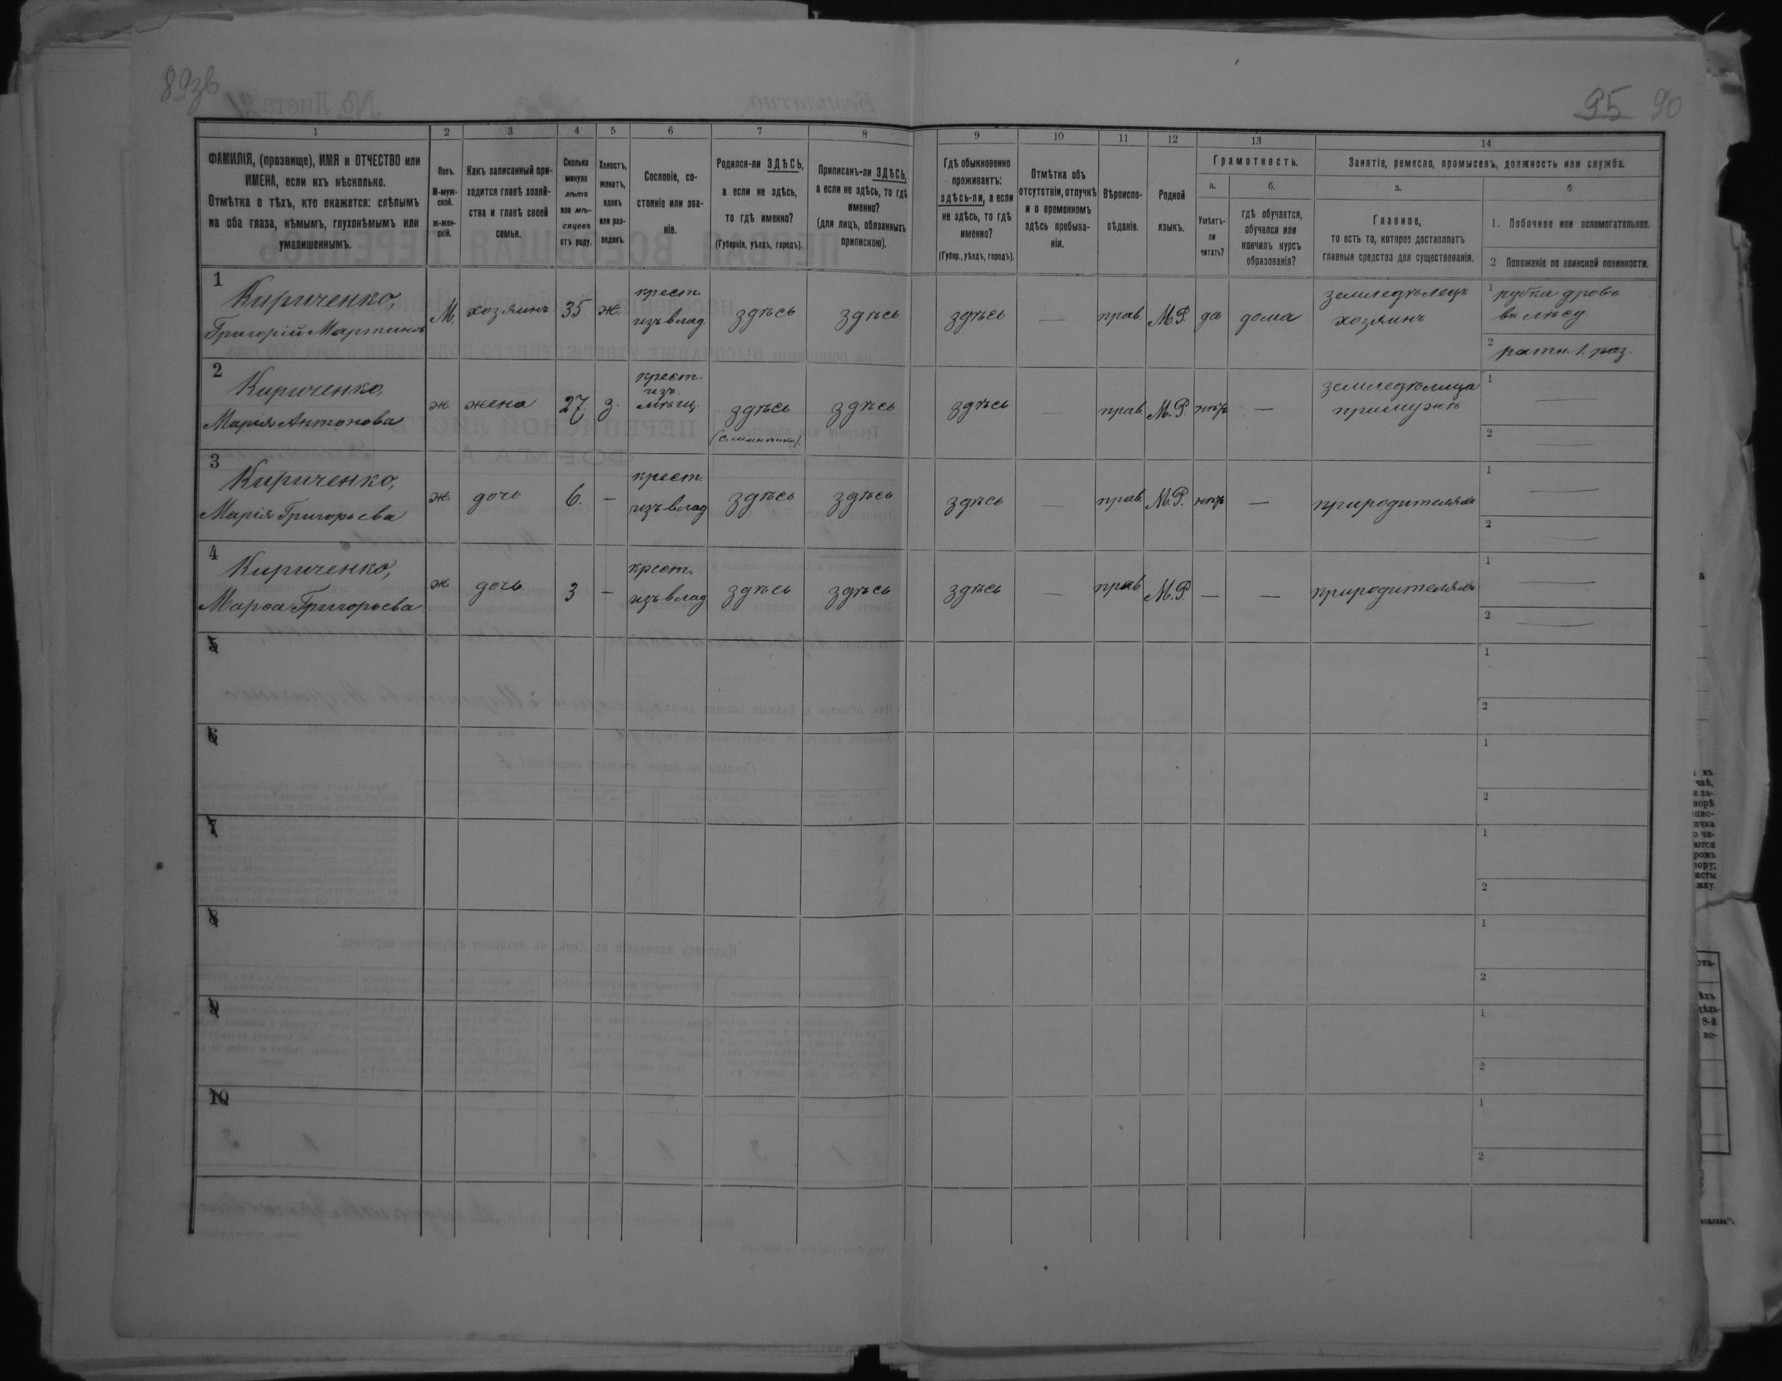 89зв
95 90
1
2
3
4
5
6
7
8
9
10
11
12
13
14
ФАМИЛІЯ, (прозвище), ИМЯ и ОТЧЕСТВО или
ИМЕНА, если ихъ нѣсколько.
Отмѣтка о тѣхъ, кто окажется: слѣпымъ
на оба глаза, нѣмымъ, глухонѣмымъ или
умалишеннымъ.
Полъ.
М-муж-
ской.
Ж-жен-
скій.
Какъ записанный при-
ходится главѣ хозяй-
ства и главѣ своей
семьи.
Сколько
минуло
лѣтъ
или мѣ-
сяцевъ
отъ роду.
Холостъ,
женатъ,
вдовъ
или раз-
веденъ.
Сословіе, со-
стояніе или зва-
ніе.
Родился-ли ЗДѢСЬ,
а если не здѣсь,
то гдѣ именно?
(Губернія, уѣздъ, городъ).
Приписанъ-ли ЗДѢСЬ,
а если не здѣсь, то гдѣ
именно?
(для лицъ, обязанныхъ
припискою).
Гдѣ обыкновенно
проживаетъ:
здѣсь-ли, а если
не здѣсь, то гдѣ
именно?
(Губер., уѣздъ, городъ).
Отмѣтка объ
отсутствіи, отлучкѣ
и о временномъ
здѣсь пребыва-
ніи.
Вѣроиспо-
вѣданіе.
Родной
языкъ.
Грамотность.
а.
Умѣетъ-
ли
читать?
б.
гдѣ обучается,
обучался или
кончилъ курсъ
образованія?
Занятіе, ремесло, промыселъ, должность или служба.
а.
Главное,
то есть то, которое доставляетъ
главныя средства для существованія.
б
1. Побочное или вспомогательное.
2 Положеніе по воинской повинности.
1
Кириченко,
Григорій Мартиновъ
М.
хозяинъ
35
ж.
крест.
изъ влад.
здѣсь
здѣсь
здѣсь
—
прав.
М.Р.
да
дома
земледѣлецъ
хозяинъ
1 рубка дровъ
въ лѣсу
2 ратн. 1. раз.
2
Кириченко,
Марія Антонова
ж
жена
27
з.
крест.
изъ
мѣщ.
здѣсь
здѣсь
здѣсь
—
прав.
М.Р.
нѣтъ
—
земледѣлица
при мужѣ
1 —
2 —
3
Кириченко,
Марія Григорьева
ж
дочь
6.
—
крест.
изъ влад
здѣсь
здѣсь
здѣсь
—
прав.
М.Р.
нѣтъ
—
при родителяхъ
1 —
2 —
4
Кириченко,
Марѳа Григорьева
ж
дочь
3
—
крест.
изъ влад
здѣсь
здѣсь
здѣсь
—
прав.
М.Р.
—
—
при родителяхъ
1 —
2 —
5
1
2
6
1
2
7
1
2
8
1
2
9
1
2
10
1
2